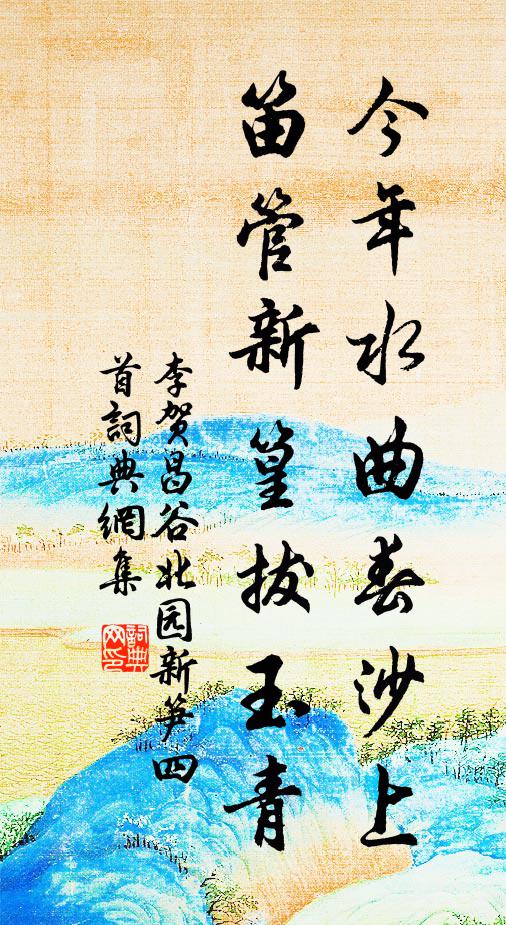 今年水曲春沙上
笛管新篁拔玉青
李贺昌谷北园新笋四
首詞典網集
詞典
网印